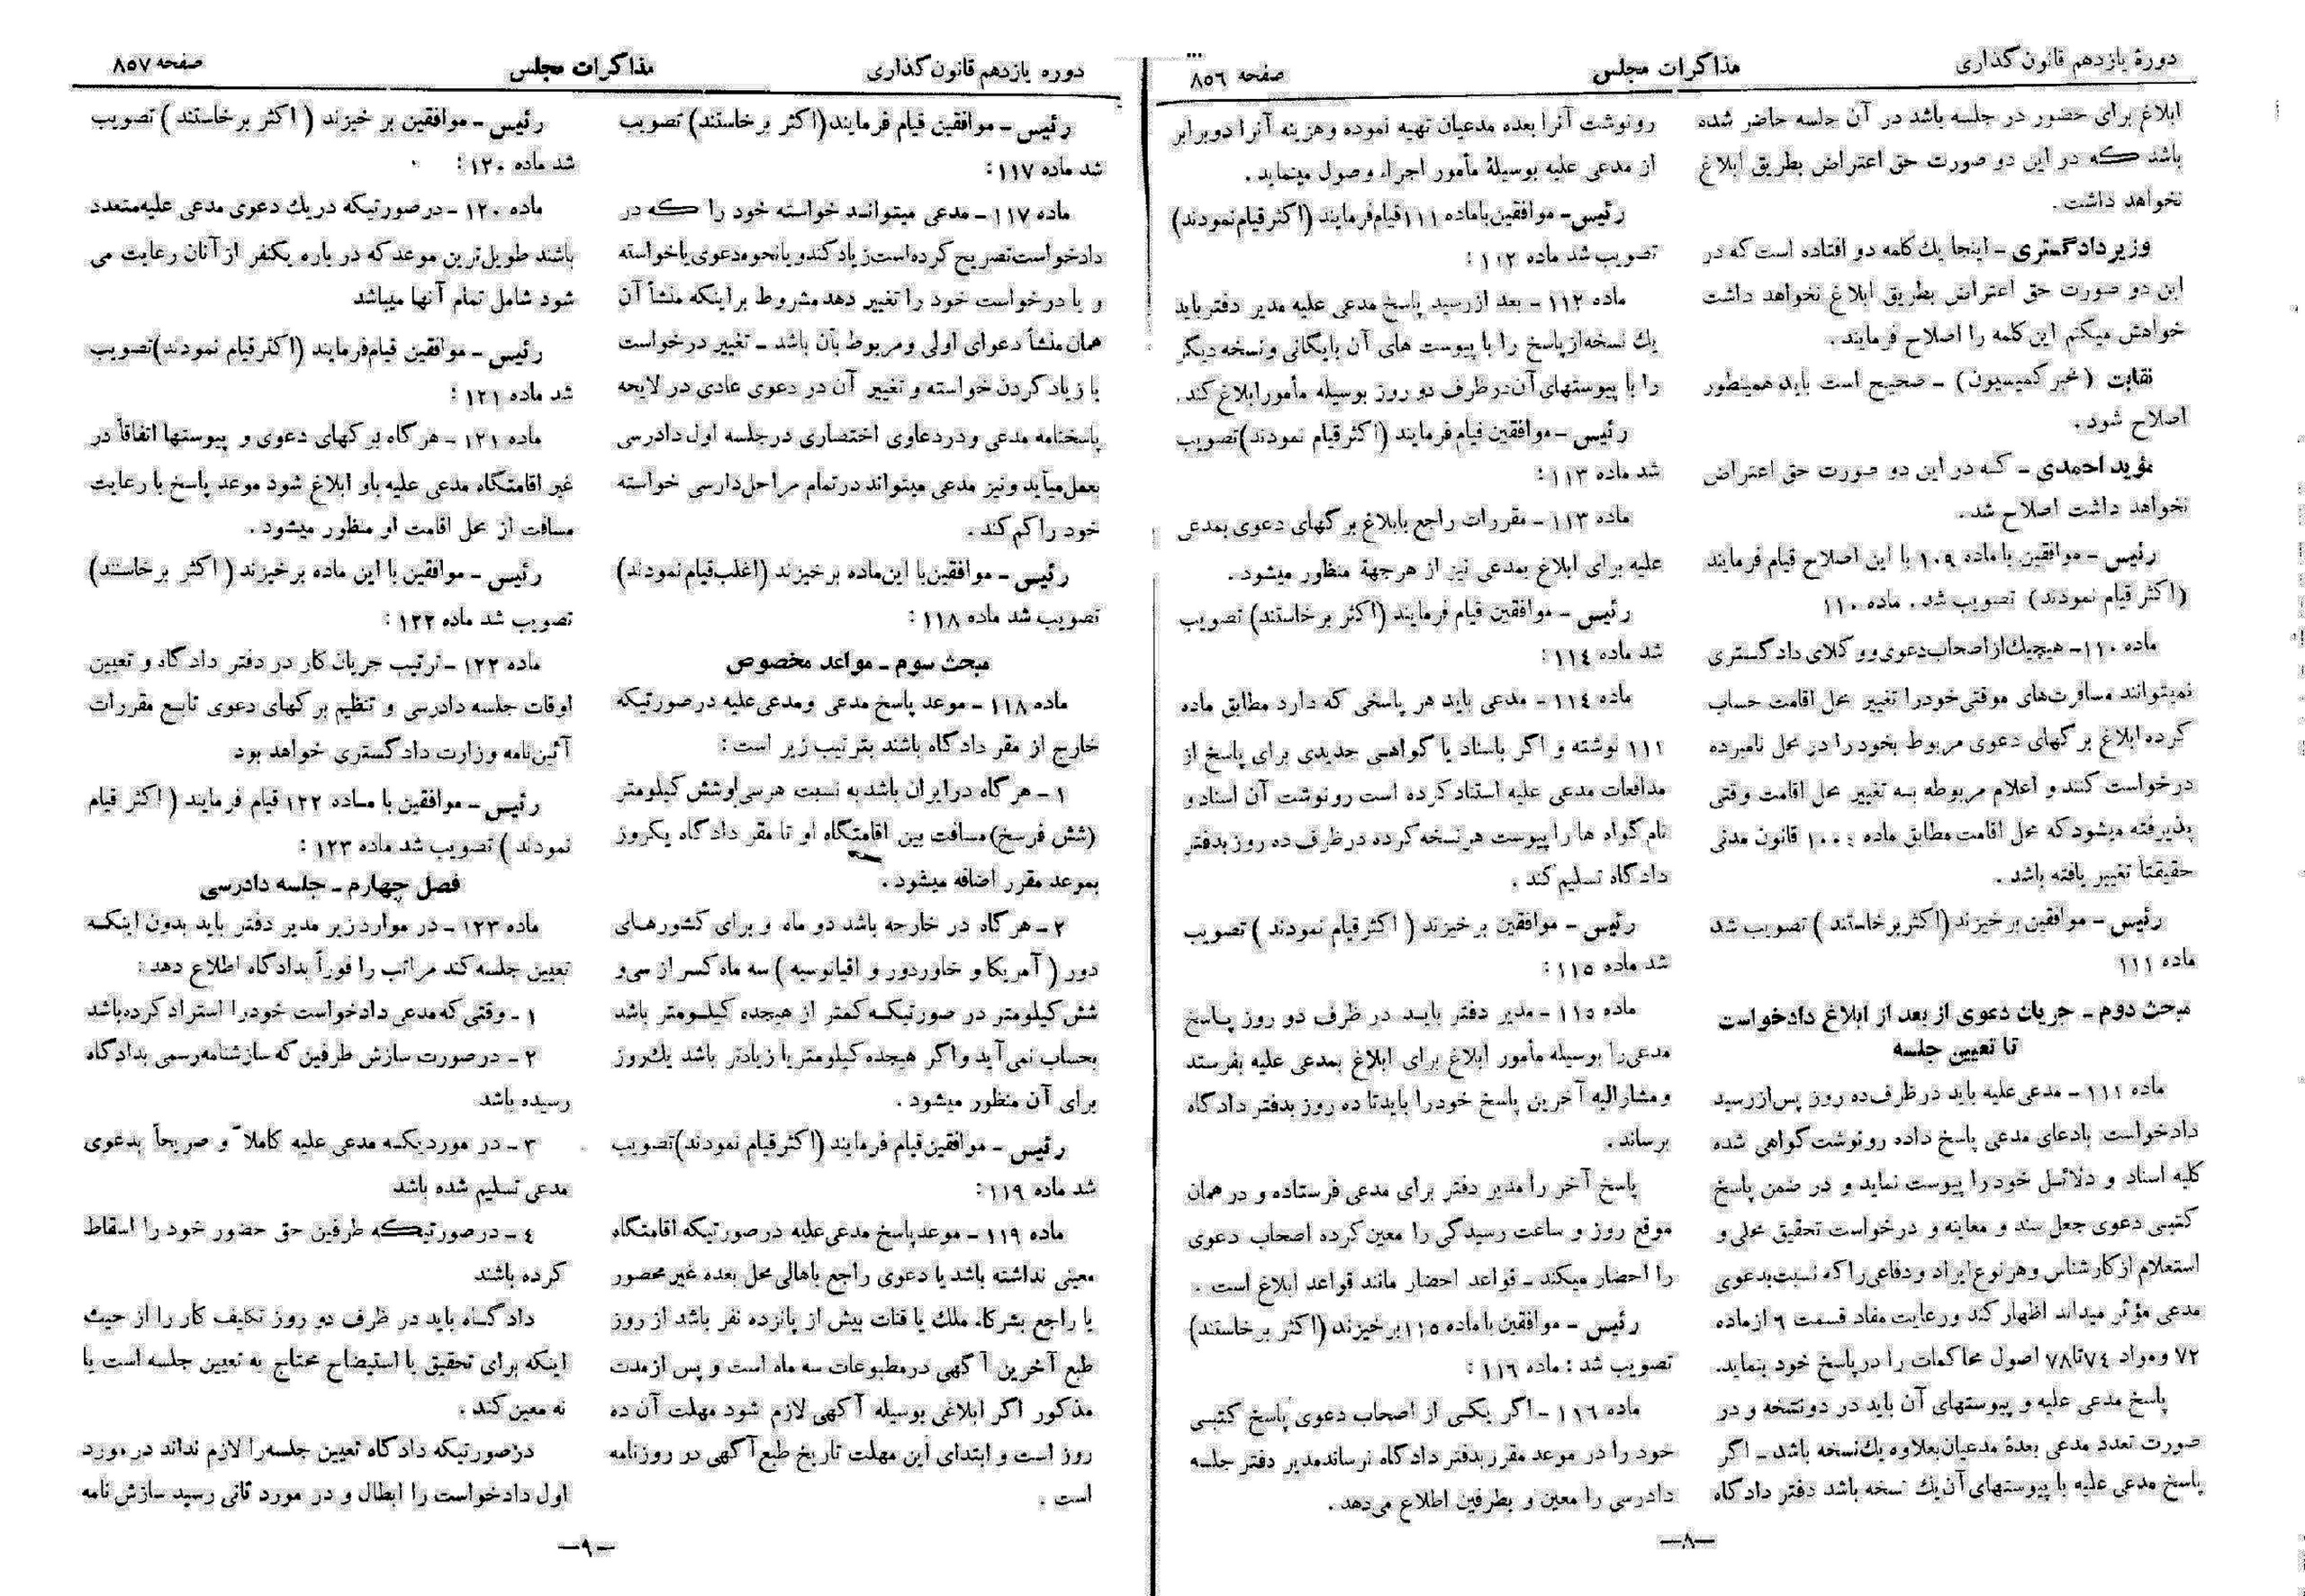 دورهٔ یازدهم قانون گذاری
مذاکرات مجلس
صفحه ۸۵٦
ابلاغ برای حضور در جلسه باشد در آن جلسه حاضر شده
باشد که در این دو صورت حق اعتراض بطریق ابلاغ
نخواهد داشت.
وزیر دادگستری ـ اینجا یك کلمه دو افتاده است که در
این دو صورت حق اعتراض بطریق ابلاغ نخواهد داشت
خواهش میکنم این کلمه را اصلاح فرمایند.
نقابت (مخبر کمیسیون) ـ صحیح است باید همینطور
اصلاح شود.
مؤید احمدی ـ که در این دو صورت حق اعتراض
نخواهد داشت اصلاح شد.
رئیس ـ موافقین با ماده ۱۰۹ با این اصلاح قیام فرمایند
(اکثر قیام نمودند) تصویب شد. ماده ۱۱۰
ماده ۱۱۰ـ هیچیك از اصحاب دعوی و وکلای دادگستری
نمیتوانند مسافرت‌های موقتی خود را تغییر محل اقامت حساب
کرده ابلاغ برگهای دعوی مربوط بخود را در محل نامبرده
درخواست کنند و اعلام مربوطه به تغییر محل اقامت وقتی
پذیرفته میشود که محل اقامت مطابق ماده ۱۰۰٤ قانون مدنی
حقیقتاً تغییر یافته باشد.
رئیس ـ موافقین برخیزند (اکثر برخاستند) تصویب شد
ماده ۱۱۱
مبحث دوم ـ جریان دعوی از بعد از ابلاغ دادخواست
تا تعیین جلسه
ماده ۱۱۱ ـ مدعی علیه باید در ظرف ده روز پس از رسید
دادخواست بادعای مدعی پاسخ داده رونوشت گواهی شده
کلیه اسناد و دلائل خود را پیوست نماید و در ضمن پاسخ
کتبی دعوی جعل سند و معاینه و درخواست تحقیق محلی و
استعلام از کارشناس و هر نوع ایراد و دفاعی را که نسبت بدعوی
مدعی مؤثر میداند اظهار کند و رعایت مفاد قسمت ٦ از ماده
۷۲ و مواد ۷٤ تا ۷۸ اصول محاکمات را در پاسخ خود بنماید.
پاسخ مدعی علیه و پیوستهای آن باید در دو نسخه و در
صورت تعدد مدعی بعدهٔ مدعیان بعلاوه یك نسخه باشد ـ اگر
پاسخ مدعی علیه با پیوستهای آن یك نسخه باشد دفتر دادگاه
رونوشت آنرا بعده مدعیان تهیه نموده و هزینه آنرا دو برابر
از مدعی علیه بوسیلهٔ مأمور اجراء وصول مینماید.
رئیس ـ موافقین با ماده ۱۱۱ قیام فرمایند (اکثر قیام نمودند)
تصویب شد ماده ۱۱۲:
ماده ۱۱۲ ـ بعد از رسید پاسخ مدعی علیه مدیر دفتر باید
یك نسخه از پاسخ را با پیوست های آن بایگانی و نسخه دیگر
را با پیوستهای آن در ظرف دو روز بوسیله مأمور ابلاغ کند.
رئیس ـ موافقین قیام فرمایند (اکثر قیام نمودند) تصویب
شد ماده ۱۱۳:
ماده ۱۱۳ ـ مقررات راجع بابلاغ برگهای دعوی بمدعی
علیه برای ابلاغ بمدعی نیز از هر جهة منظور میشود.
رئیس ـ موافقین قیام فرمایند (اکثر برخاستند) تصویب
شد ماده ۱۱٤:
ماده ۱۱٤ ـ مدعی باید هر پاسخی که دارد مطابق ماده
۱۱۱ نوشته و اگر باسناد یا گواهی جدیدی برای پاسخ از
مدافعات مدعی علیه استناد کرده است رونوشت آن اسناد و
نام گواه ها را پیوست هر نسخه کرده در ظرف ده روز بدفتر
دادگاه تسلیم کند.
رئیس ـ موافقین برخیزند (اکثر قیام نمودند) تصویب
شد ماده ۱۱۵:
ماده ۱۱۵ ـ مدیر دفتر باید در ظرف دو روز پاسخ
مدعی را بوسیله مأمور ابلاغ برای ابلاغ بمدعی علیه بفرستد
و مشارالیه آخرین پاسخ خود را باید تا ده روز بدفتر دادگاه
برساند.
پاسخ آخر را مدیر دفتر برای مدعی فرستاده و در همان
موقع روز و ساعت رسیدگی را معین کرده اصحاب دعوی
را احضار میکند ـ قواعد احضار مانند قواعد ابلاغ است.
رئیس ـ موافقین با ماده ۱۱۵ برخیزند (اکثر برخاستند)
تصویب شد: ماده ۱۱٦:
ماده ۱۱٦ ـ اگر یکی از اصحاب دعوی پاسخ کتبی
خود را در موعد مقرر بدفتر دادگاه نرساند مدیر دفتر جلسه
دادرسی را معین و بطرفین اطلاع می‌دهد.
ـ۸ـ
دوره یازدهم قانون گذاری
مذاکرات مجلس
صفحه ۸۵۷
رئیس ـ موافقین قیام فرمایند (اکثر برخاستند) تصویب
شد ماده ۱۱۷:
ماده ۱۱۷ ـ مدعی میتواند خواسته خود را که در
دادخواست تصریح کرده است زیاد کند و یا نحوه دعوی یا خواسته
و یا درخواست خود را تغییر دهد مشروط بر اینکه منشأ آن
همان منشأ دعوای اولی و مربوط بآن باشد ـ تغییر درخواست
یا زیاد کردن خواسته و تغییر آن در دعوی عادی در لایحه
پاسخنامه مدعی و در دعاوی اختصاری در جلسه اول دادرسی
بعمل میآید و نیز مدعی میتواند در تمام مراحل دارسی خواسته
خود را کم کند.
رئیس ـ موافقین با این ماده برخیزند (اغلب قیام نمودند)
تصویب شد ماده ۱۱۸:
مبحث سوم ـ مواعد مخصوص
ماده ۱۱۸ ـ موعد پاسخ مدعی و مدعی علیه در صورتیکه
خارج از مقر دادگاه باشند بترتیب زیر است:
۱ ـ هرگاه در ایران باشد به نسبت هر سی و شش کیلومتر
(شش فرسخ) مسافت بین اقامتگاه او تا مقر دادگاه یکروز
بموعد مقرر اضافه میشود.
۲ ـ هرگاه در خارجه باشد دو ماه و برای کشورهای
دور (آمریکا و خاور دور و اقیانوسیه) سه ماه کسر از سی و
شش کیلومتر در صورتیکه کمتر از هیجده کیلومتر باشد
بحساب نمی آید و اگر هیجده کیلومتر یا زیادتر باشد یك روز
برای آن منظور میشود.
رئیس ـ موافقین قیام فرمایند (اکثر قیام نمودند) تصویب
شد ماده ۱۱۹:
ماده ۱۱۹ ـ موعد پاسخ مدعی علیه در صورتیکه اقامتگاه
معینی نداشته باشد یا دعوی راجع باهالی محل بعده غیر محصور
یا راجع بشرکاء ملك یا قنات بیش از پانزده نفر باشد از روز
طبع آخرین آگهی در مطبوعات سه ماه است و پس از مدت
مذکور اگر ابلاغی بوسیله آگهی لازم شود مهلت آن ده
روز است و ابتدای این مهلت تاریخ طبع آگهی در روزنامه
است.
رئیس ـ موافقین برخیزند (اکثر برخاستند) تصویب
شد ماده ۱۲۰:
ماده ۱۲۰ ـ در صورتیکه در یك دعوی مدعی علیه متعدد
باشند طویل ترین موعد که در باره یکنفر از آنان رعایت می
شود شامل تمام آنها میباشد
رئیس ـ موافقین قیام فرمایند (اکثر قیام نمودند) تصویب
شد ماده ۱۲۱:
ماده ۱۲۱ ـ هرگاه برگهای دعوی و پیوستها اتفاقاً در
غیر اقامتگاه مدعی علیه باو ابلاغ شود موعد پاسخ با رعایت
مسافت از محل اقامت او منظور میشود.
رئیس ـ موافقین با این ماده برخیزند (اکثر برخاستند)
تصویب شد ماده ۱۲۲:
ماده ۱۲۲ ـ ترتیب جریان کار در دفتر دادگاه و تعیین
اوقات جلسه دادرسی و تنظیم برگهای دعوی تابع مقررات
آئین‌نامه وزارت دادگستری خواهد بود
رئیس ـ موافقین با ماده ۱۲۲ قیام فرمایند (اکثر قیام
نمودند) تصویب شد ماده ۱۲۳:
فصل چهارم ـ جلسه دادرسی
ماده ۱۲۳ ـ در موارد زیر مدیر دفتر باید بدون اینکه
تعیین جلسه کند مراتب را فوراً بدادگاه اطلاع دهد:
۱ ـ وقتی که مدعی دادخواست خود را استراد کرده باشد
۲ ـ در صورت سازش طرفین که سازشنامه رسمی بدادگاه
رسیده باشد
۳ ـ در موردیکه مدعی علیه کاملاً و صریحاً بدعوی
مدعی تسلیم شده باشد
٤ ـ در صورتیکه طرفین حق حضور خود را اسقاط
کرده باشند
دادگاه باید در ظرف دو روز تکلیف کار را از حیث
اینکه برای تحقیق یا استیضاح محتاج به تعیین جلسه است یا
نه معین کند.
در صورتیکه دادگاه تعیین جلسه را لازم نداند در مورد
اول دادخواست را ابطال و در مورد ثانی رسید سازش نامه
ـ۹ـ